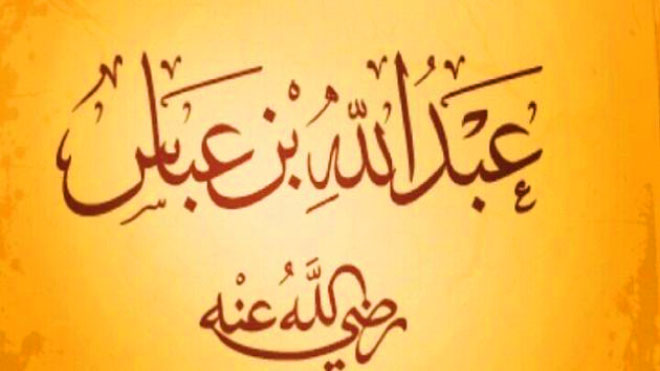 عَبْدُ اللهِ بْن عَبَّاس
رَضِيَ اللَّهُ عَنْه